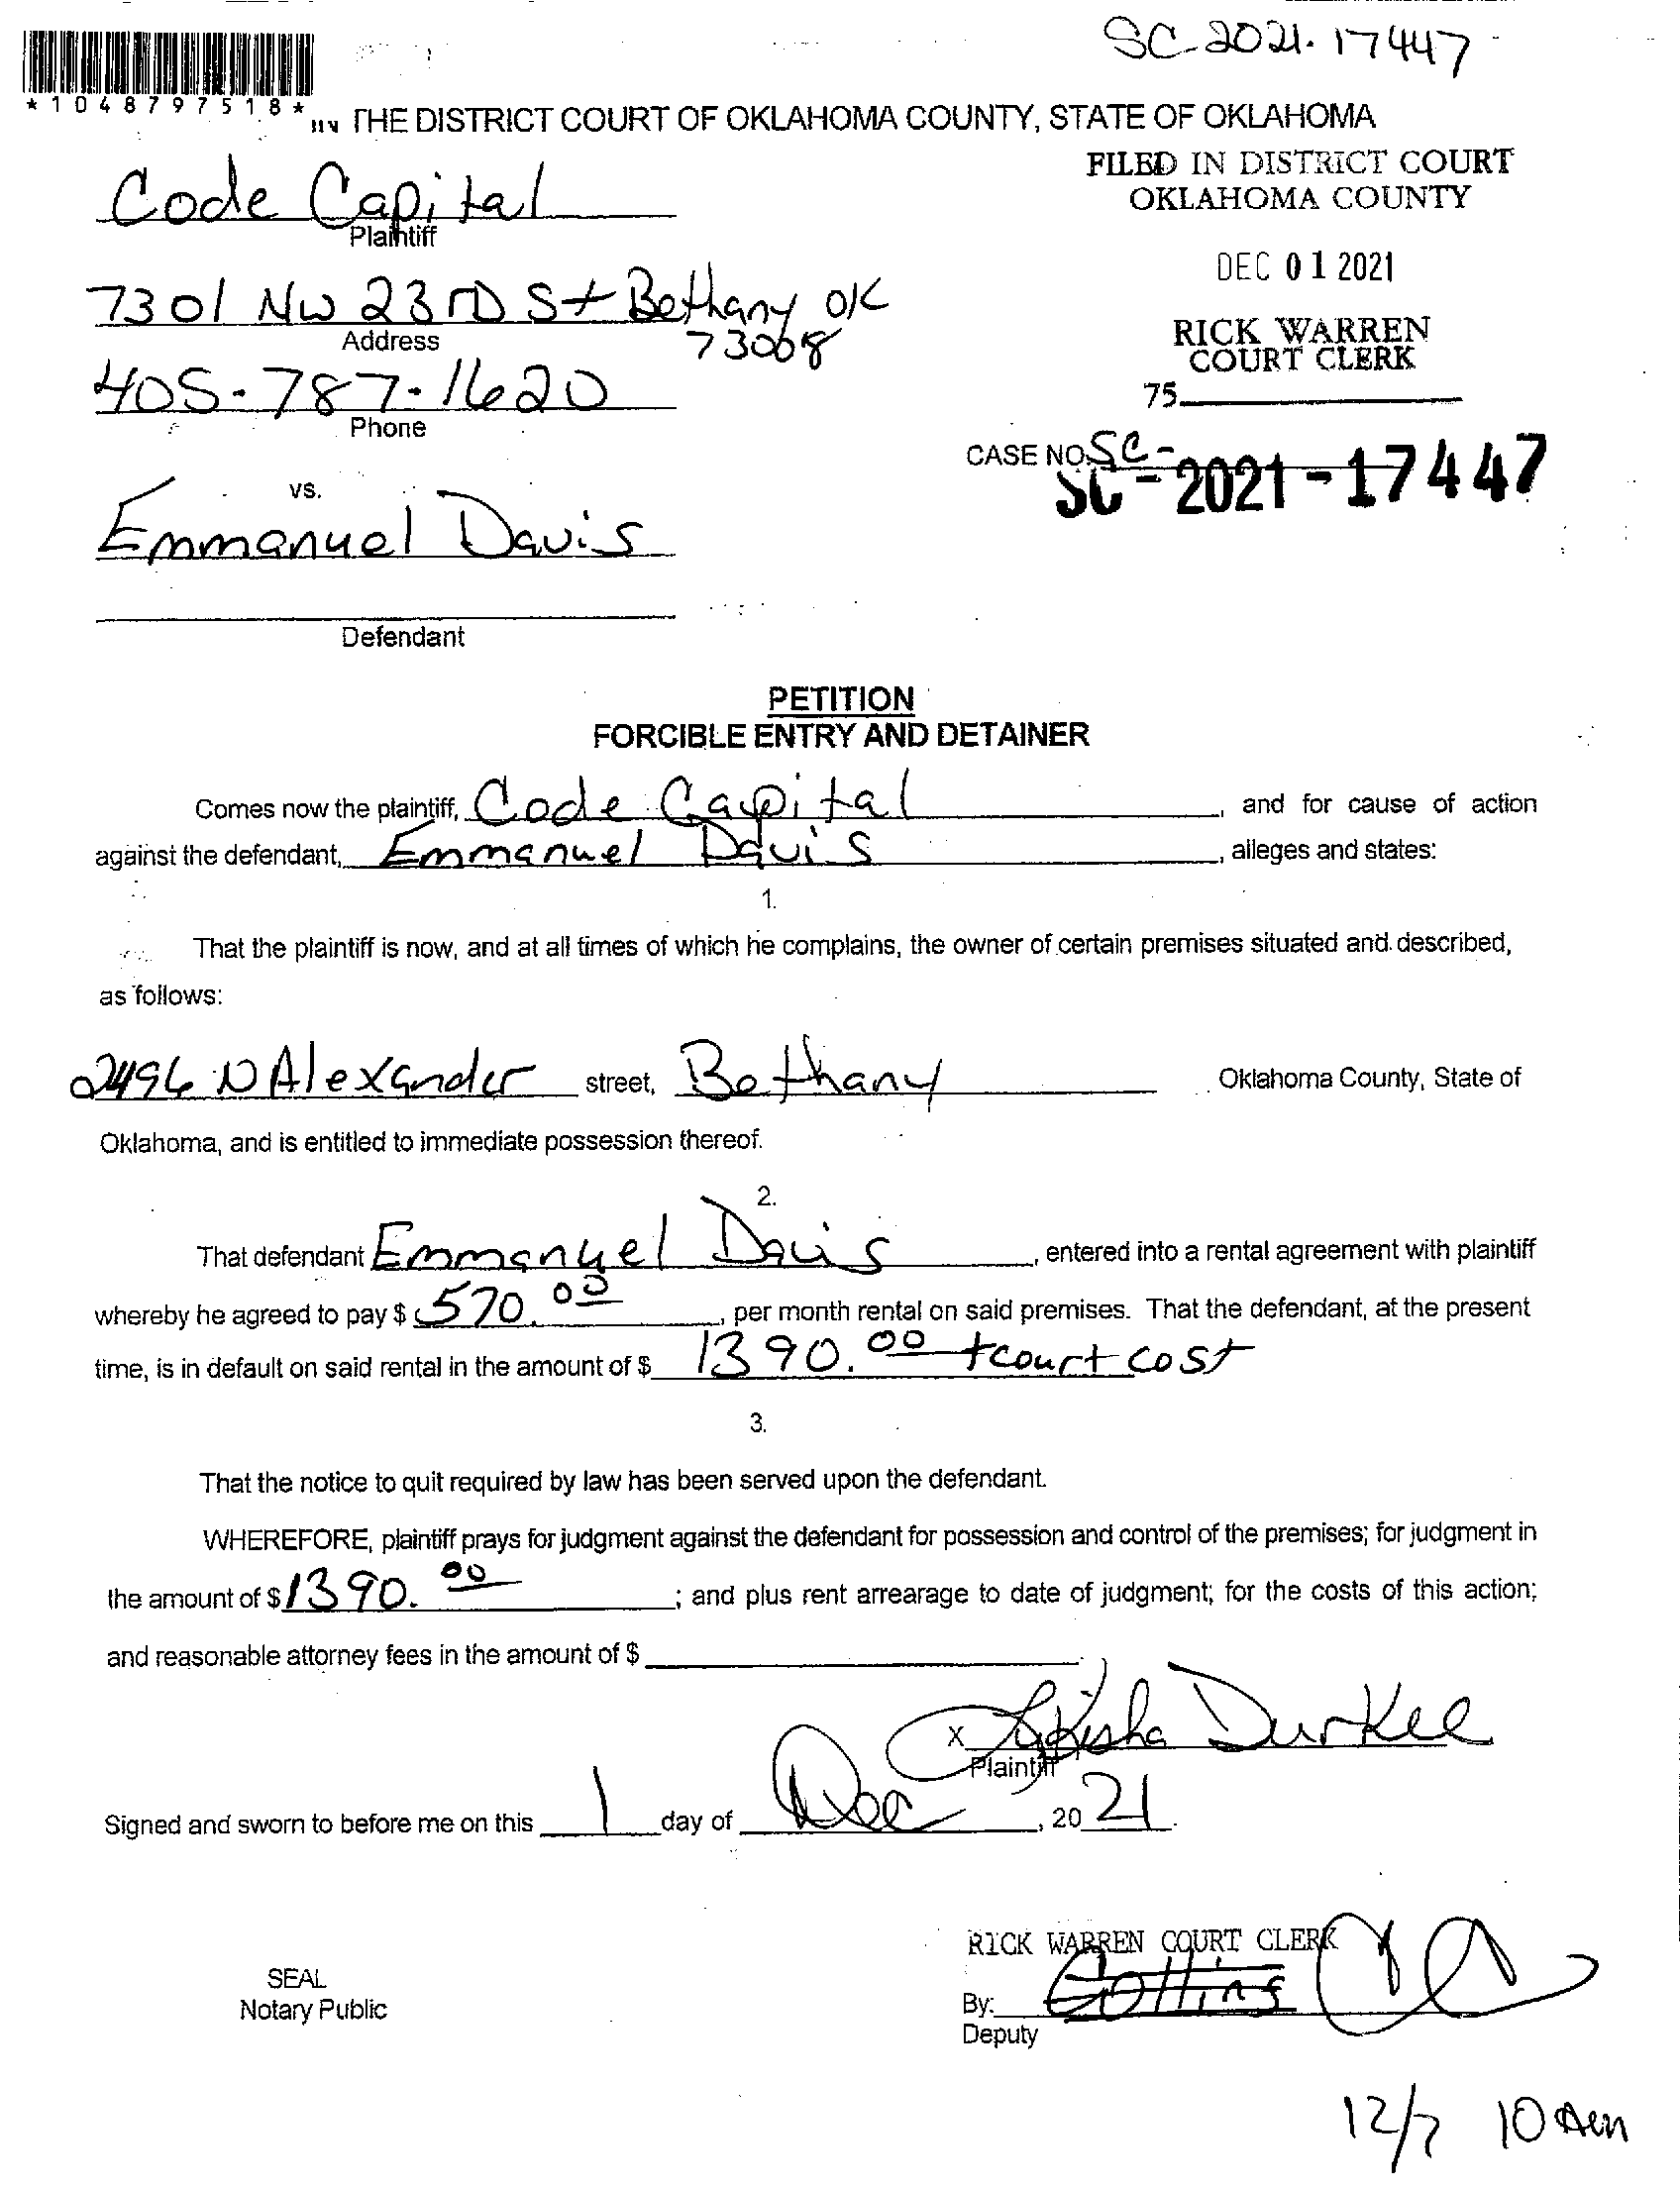 SC-2021-17447
*1048797518*
IN THE DISTRICT COURT OF OKLAHOMA COUNTY, STATE OF OKLAHOMA
FILED IN DISTRICT COURT
OKLAHOMA COUNTY
Code Capital
Plaintiff
DEC 01 2021
7301 NW 23RD St Bethany OK
73008
Address
RICK WARREN
COURT CLERK
405-787-1620
Phone
75
CASE NO. SC-
SC-2021-17447
vs.
Emmanuel Davis
Defendant
PETITION
FORCIBLE ENTRY AND DETAINER
Comes now the plaintiff, Code Capital, and for cause of action
against the defendant, Emmanuel Davis, alleges and states:
1.
That the plaintiff is now, and at all times of which he complains, the owner of certain premises situated and described,
as follows:
2496 N Alexander street, Bethany Oklahoma County, State of
Oklahoma, and is entitled to immediate possession thereof.
2.
That defendant Emmanuel Davis, entered into a rental agreement with plaintiff
whereby he agreed to pay $ 570.00, per month rental on said premises. That the defendant, at the present
time, is in default on said rental in the amount of $ 1390.00 + court cost
3.
That the notice to quit required by law has been served upon the defendant.
WHEREFORE, plaintiff prays for judgment against the defendant for possession and control of the premises; for judgment in
the amount of $ 1390.00; and plus rent arrearage to date of judgment; for the costs of this action;
and reasonable attorney fees in the amount of $
X Lakisha Durkee
Plaintiff
Signed and sworn to before me on this 1 day of Dec, 2021.
RICK WARREN COURT CLERK
SEAL
Notary Public
By: Collins
Deputy
12/7 10 am